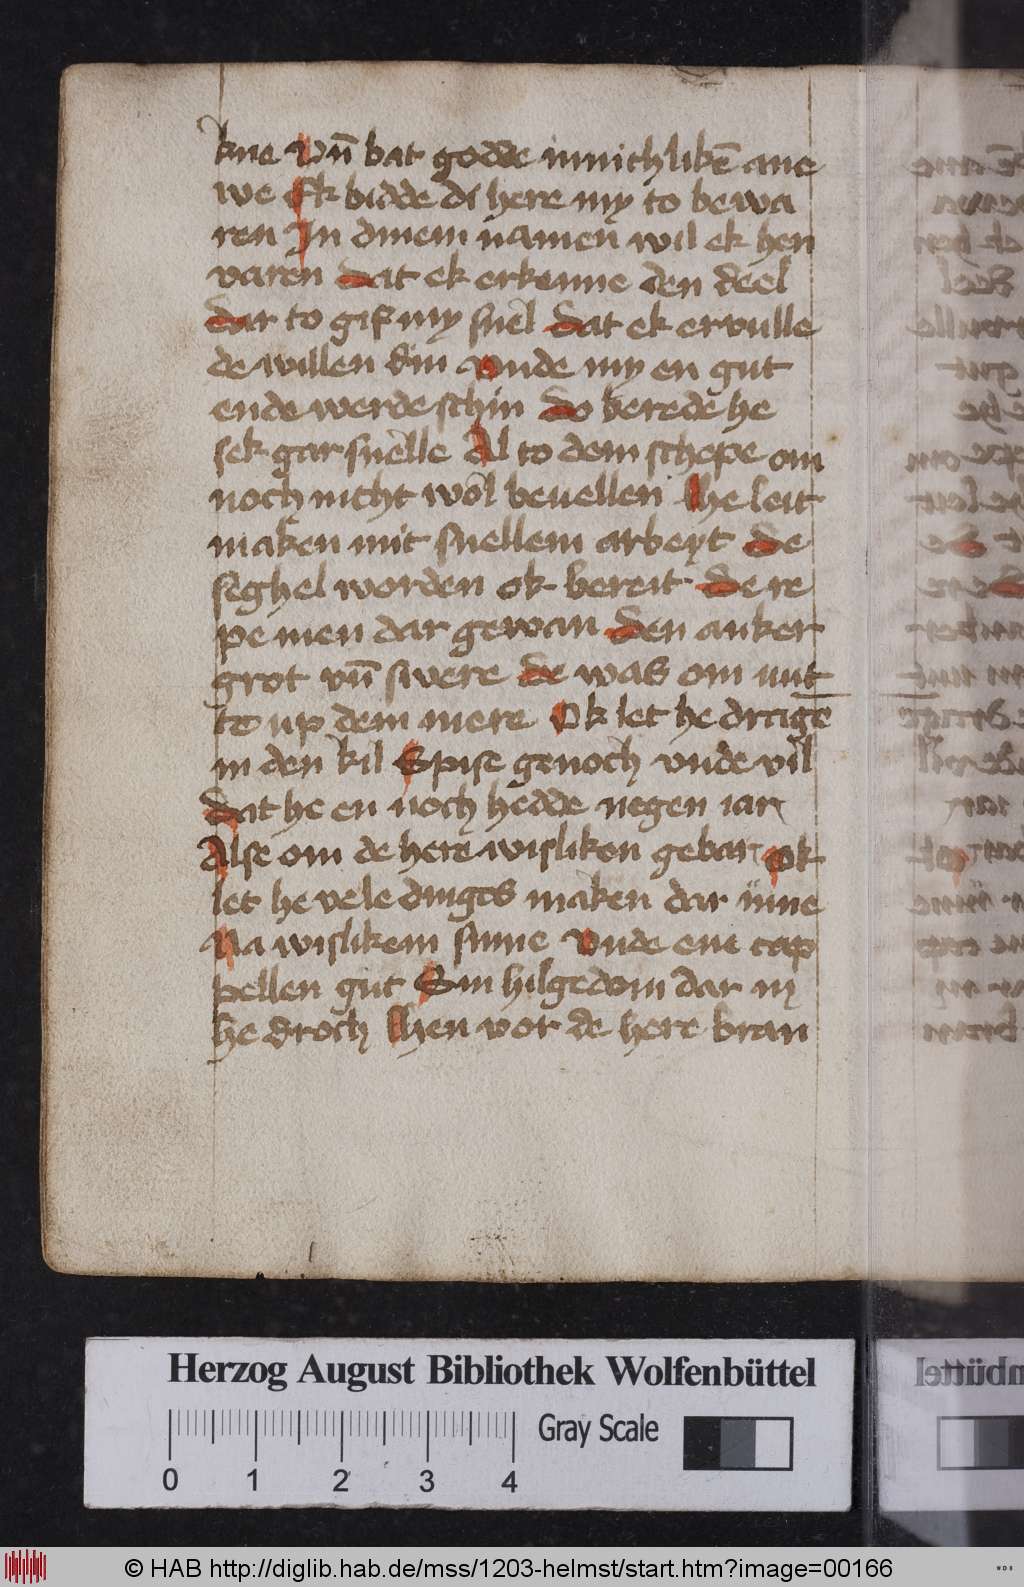 kne Vn̄ bat godde innichlikē ane
we Ek bidde di here my to bewa
ren In dinem namen wil ek hen
varen dat ek erkenne den deel
dar to gif my snel dat ek ervulle
de willen din Vnde my en gut
ende werde schin do berede he
sek gar snelle Al to dem schepe om
noch nicht wol beuellen He leit
maken mit snellem arbeyt de
seghel worden ok bereit De re
pe men dar gewan den anker
grot vn̄ swere de was om nut
te up dem mere Ok let he dragē
in den kil Spise genoch vnde vil
dat he en noch hedde negen iar
Alse om de here wisliken gebar Ok
let he vele dinges maken dar inne
Na wislikem sinne Vnde ene cap
pellen gut Sin hilgedom dar in
he droch Hen vor de here bran
Herzog August Bibliothek Wolfenbüttel
Gray Scale
0 1 2 3 4
© HAB http://diglib.hab.de/mss/1203-helmst/start.htm?image=00166